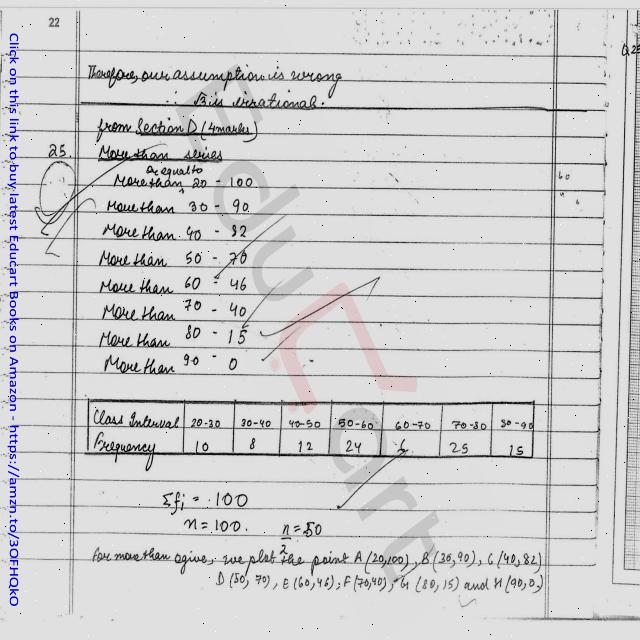 22
Click on this link to buy latest Educart Books on Amazon - https://amzn.to/3OFHQkO
Therefore, our assumption is wrong
∴ √3 is irrational.
from Section D (4 marks)
25. More than series
or equal to
More than 20 - 100
More than 30 - 90
More than 40 - 82
More than 50 - 70
More than 60 - 46
More than 70 - 40
More than 80 - 15
More than 90 - 0
Class Interval 20-30 30-40 40-50 50-60 60-70 70-80 80-90
Frequency 10 8 12 24 6 25 15
Σfi = 100
n = 100. n/2 = 50
For more than ogive, we plot the point A (20,100), B (30,90), C (40,82)
D (50, 70), E (60,46), F (70,40), G (80,15) and H (90,0)
Educart